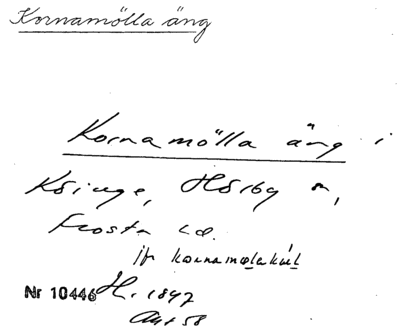 Kornamölla äng
Kornamölla äng i
Köinge, Hörby sn,
Frosta hd.
jfr kornamølakúɫ
Nr 10446 H. 1847
Akt 58